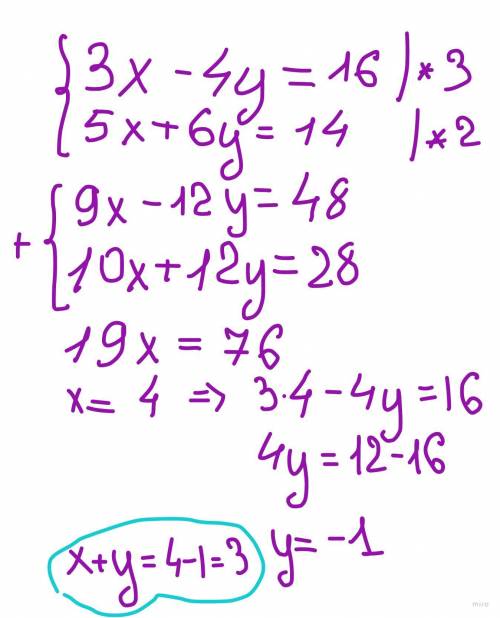 { 3x - 4y = 16 | * 3
{ 5x + 6y = 14 | * 2
+ { 9x - 12y = 48
{ 10x + 12y = 28
19x = 76
x = 4 => 3·4 - 4y = 16
4y = 12 - 16
x+y = 4-1 = 3 y = -1
miro